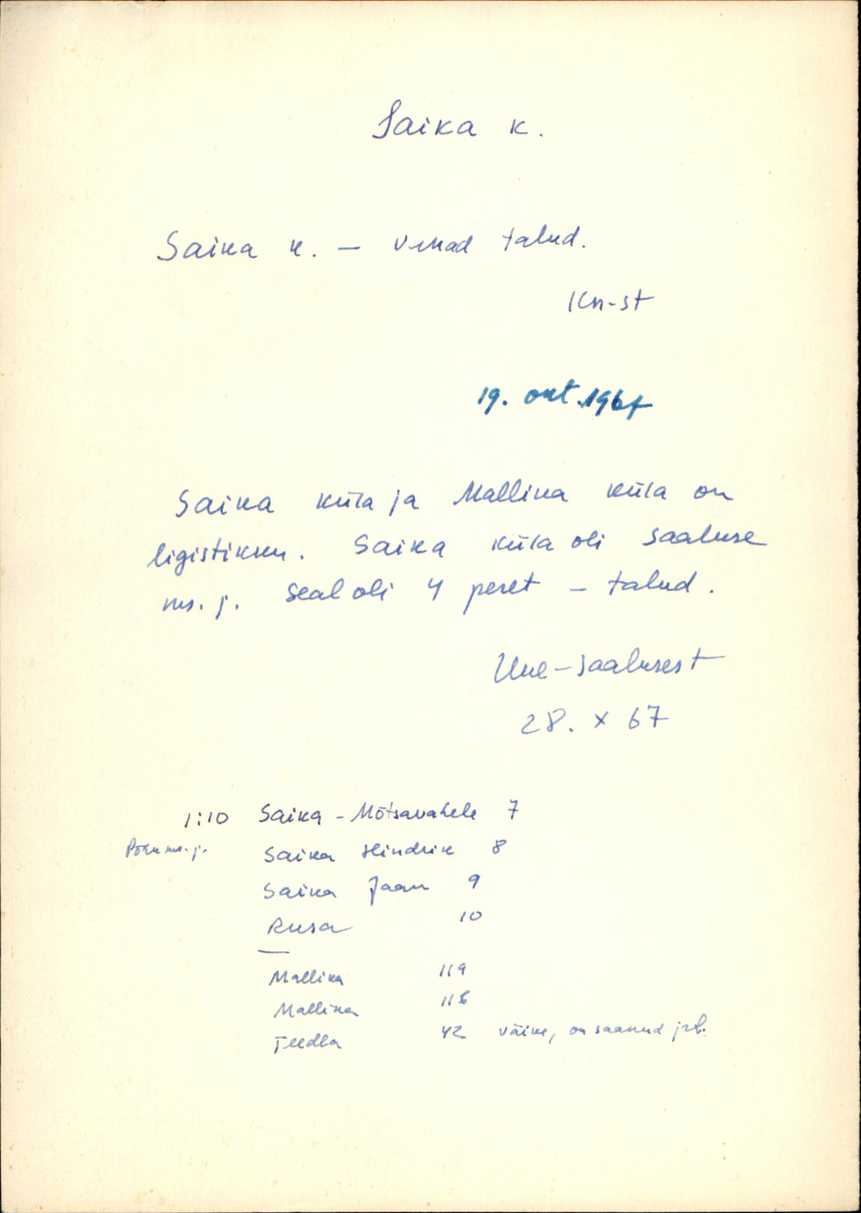 Saika k.
Saika k. – talud.
Kn-st
19. okt. 1967
Saika küla ja Mallika küla on
ligistikku. Saika küla oli Saaluse
ms. j. Seal oli 4 peret – talud.
Uue-Saalusest
28. X 67
1:10 Saika - Mõtsavahele 7
Saika Hindrik 8
Saika Jaan 9
Rusa 10
Mallika 119
Mallika 118
Teedla 42 väike, on saanud